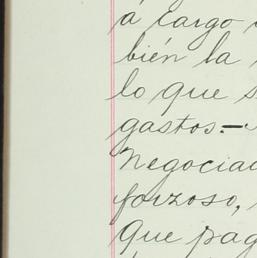 á cargo
bién la
lo que s
gastos.-
Negociac
forzoso,
que pag